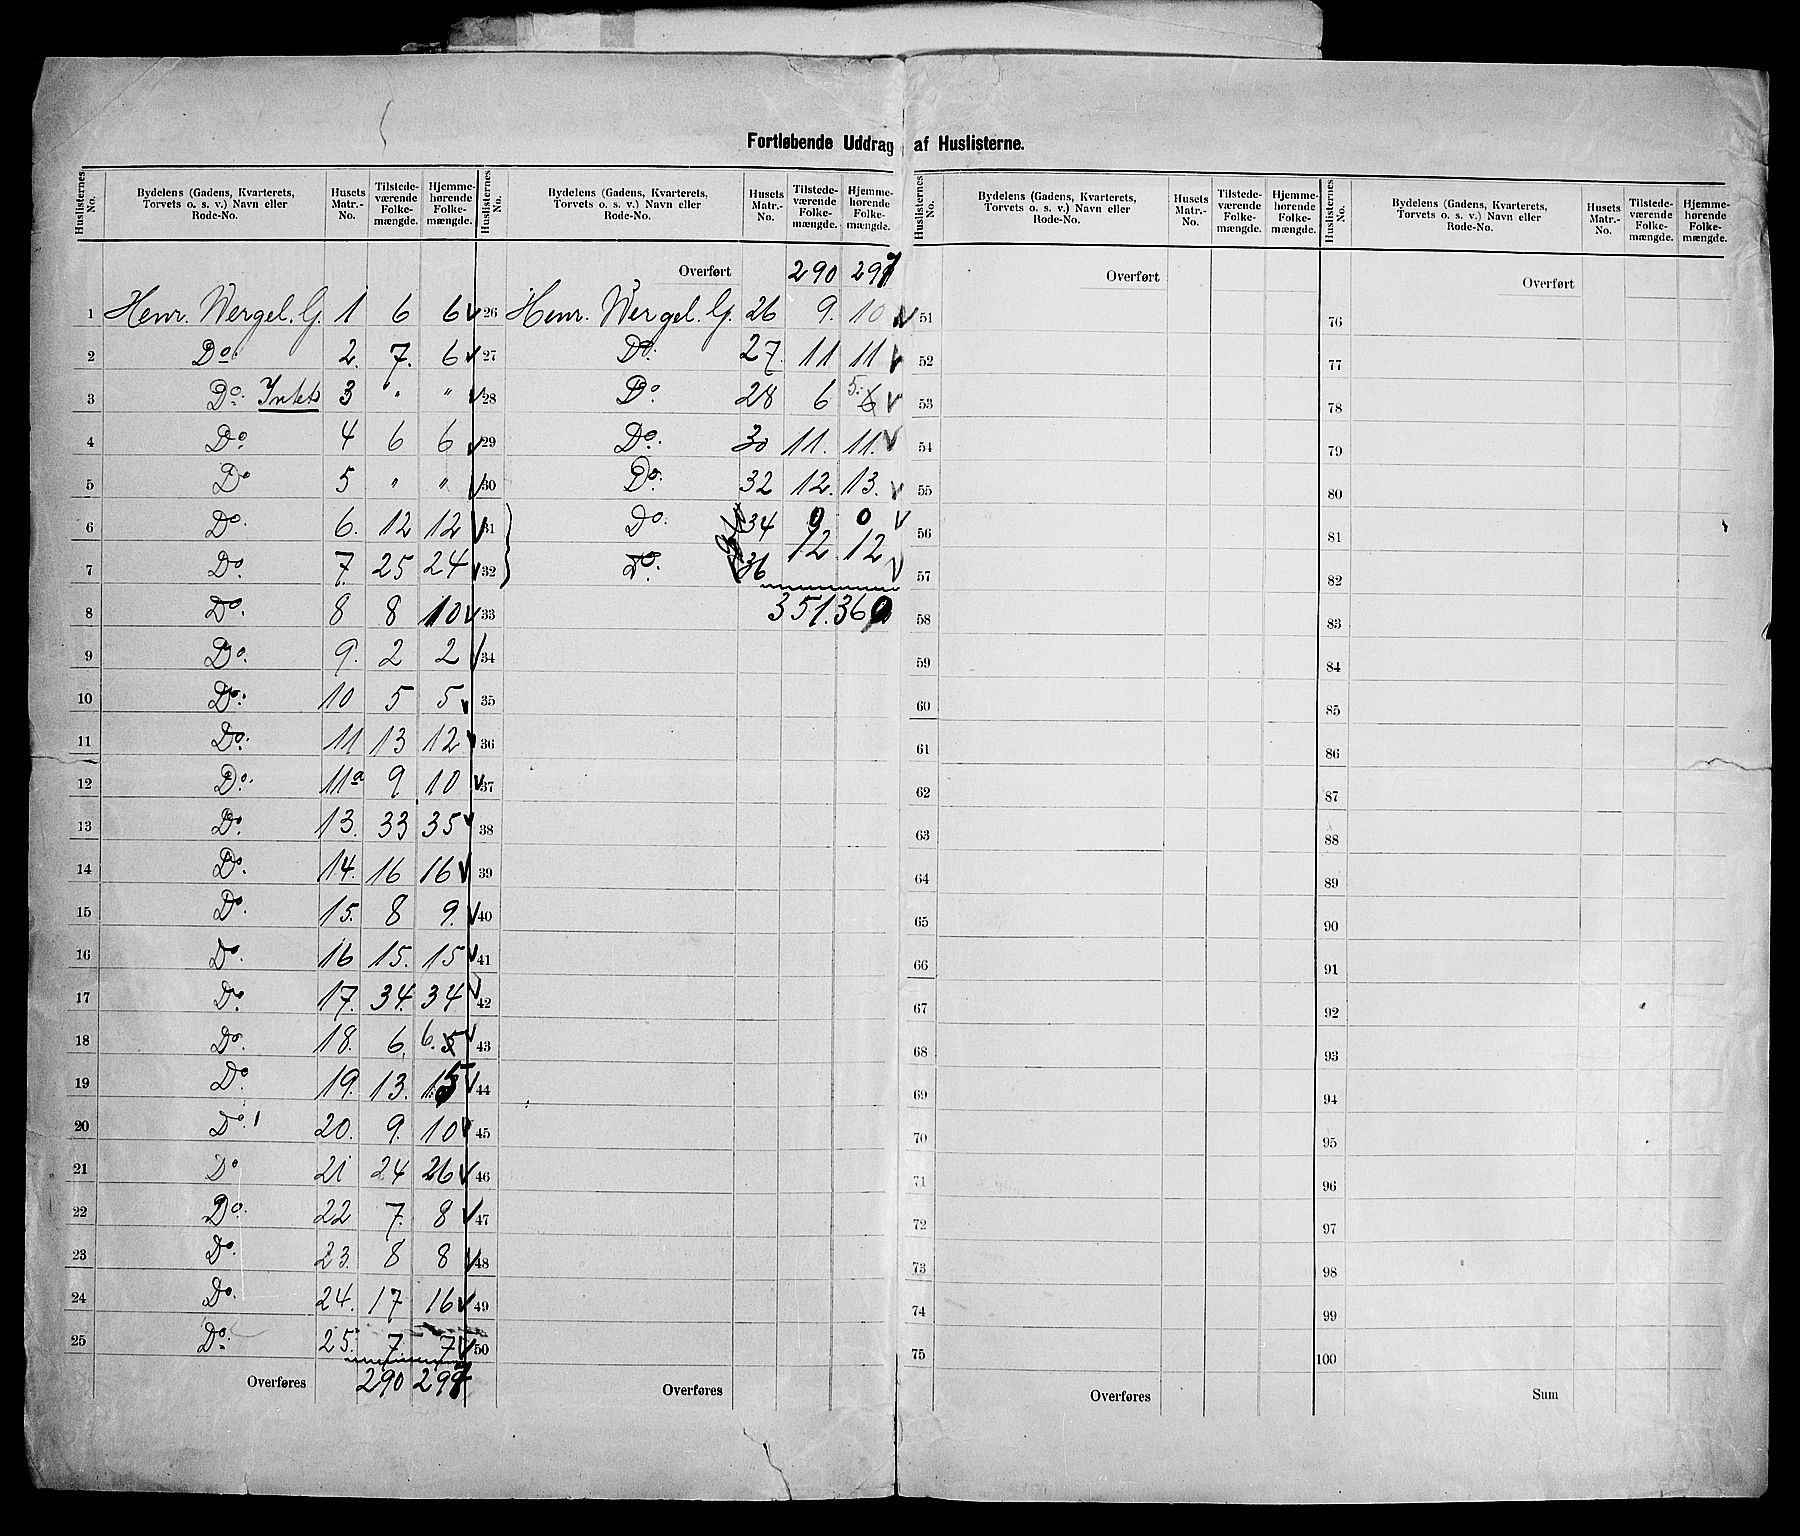 Fortløbende Uddrag af Huslisterne.
Huslisternes No. Bydelens (Gadens, Kvarterets, Torvets o. s. v.) Navn eller Rode-No. Husets Matr.-No. Tilstedeværende Folkemængde. Hjemmehørende Folkemængde.
1 Henr. Wergel. G. 1 6 6
2 Do. 2. 7. 6
3 Do. Intet 3 " "
4 Do. 4 6 6
5 Do 5 " "
6 Do. 6. 12 12
7 Do. 7. 25 24
8 Do. 8 8 10
9 Do. 9. 2 2
10 Do: 10 5 5
11 Do. 11 13 12
12 Do. 11a 9 10
13 Do. 13. 33 35
14 Do. 14. 16 16
15 Do. 15. 8 9.
16 Do. 16 15. 15
17 Do. 17. 34. 34
18 Do. 18. 6. 6. 5
19 Do. 19. 13. 15
20 Do. 20. 9. 10
21 Do 21 24 26
22 Do. 22 7. 8
23 Do. 23. 8 8
24 Do. 24. 17 16
25 Do. 25. 7. 7
Overføres 290 297
Huslisternes No. Bydelens (Gadens, Kvarterets, Torvets o. s. v.) Navn eller Rode-No. Husets Matr.-No. Tilstedeværende Folkemængde. Hjemmehørende Folkemængde.
Overført 290 297
26 Henr. Wergel. G. 26 9. 10
27 Do. 27. 11 11
28 Do 28 6 5. 6
29 Do. 30 11. 11.
30 Do. 32 12. 13.
31 Do. 34 0 0
12 12
32 Do. 36
33 351. 360
34
35
36
37
38
39
40
41
42
43
44
45
46
47
48
49
50
Overføres
Huslisternes No. Bydelens (Gadens, Kvarterets, Torvets o. s. v.) Navn eller Rode-No. Husets Matr.-No. Tilstedeværende Folkemængde. Hjemmehørende Folkemængde.
Overført
51
52
53
54
55
56
57
58
59
60
61
62
63
64
65
66
67
68
69
70
71
72
73
74
75
Overføres
Huslisternes No. Bydelens (Gadens, Kvarterets, Torvets o. s. v.) Navn eller Rode-No. Husets Matr.-No. Tilstedeværende Folkemængde. Hjemmehørende Folkemængde.
Overført
76
77
78
79
80
81
82
83
84
85
86
87
88
89
90
91
92
93
94
95
96
97
98
99
100
Sum